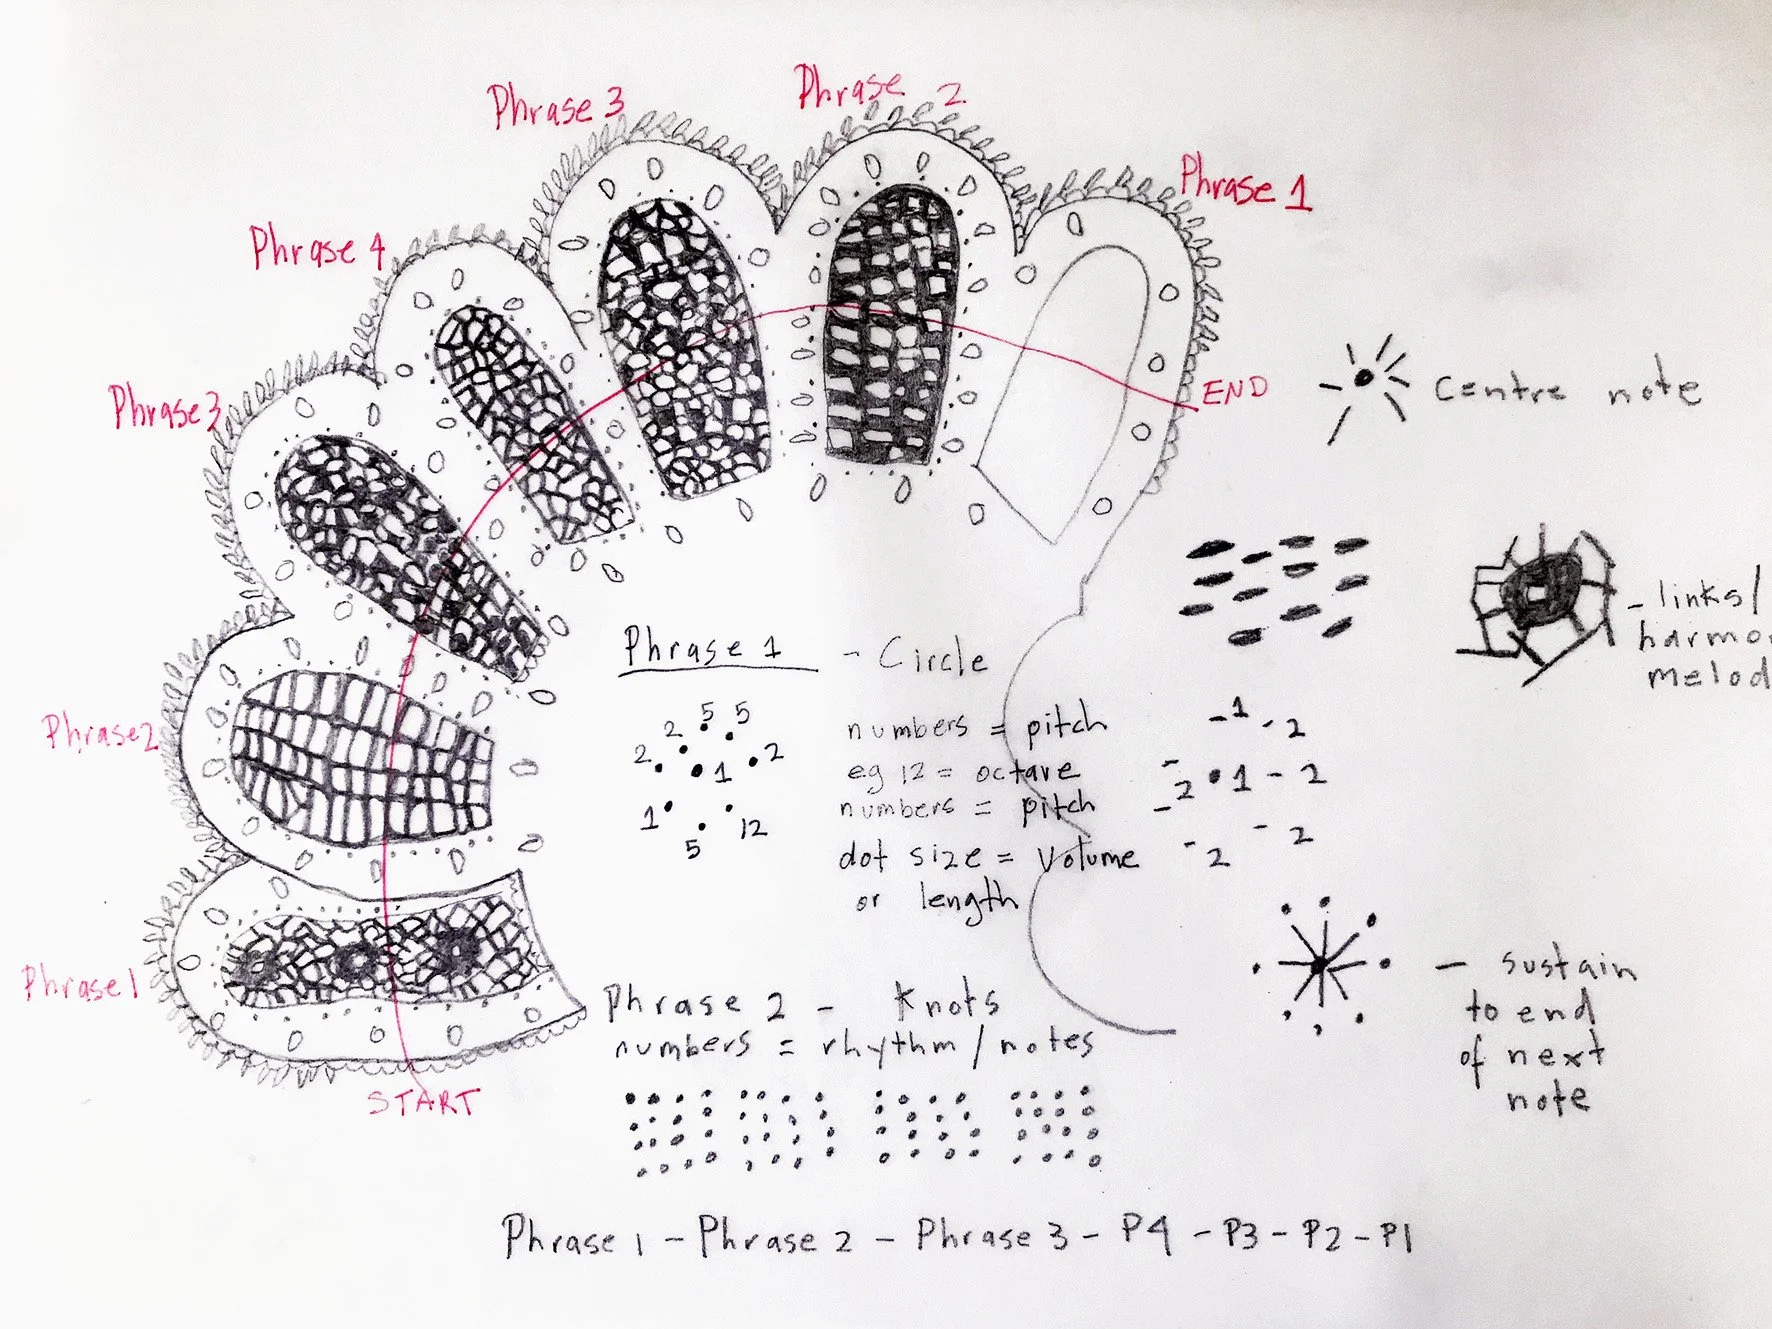 Phrase 3
Phrase 2
Phrase 1
Phrase 4
Phrase 3
END
centre note
Phrase 2
Phrase 1
START
Phrase 1 - Circle
2 5 5
2 1 2
1 5 12
numbers = pitch
eg 12 = octave
numbers = pitch
dot size = volume
or length
- links/
harmo
melod
1 2
2 1 - 2
2 2
- sustain
to end
of next
note
Phrase 2 - Knots
numbers = rhythm / notes
Phrase 1 - Phrase 2 - Phrase 3 - P4 - P3 - P2 - P1